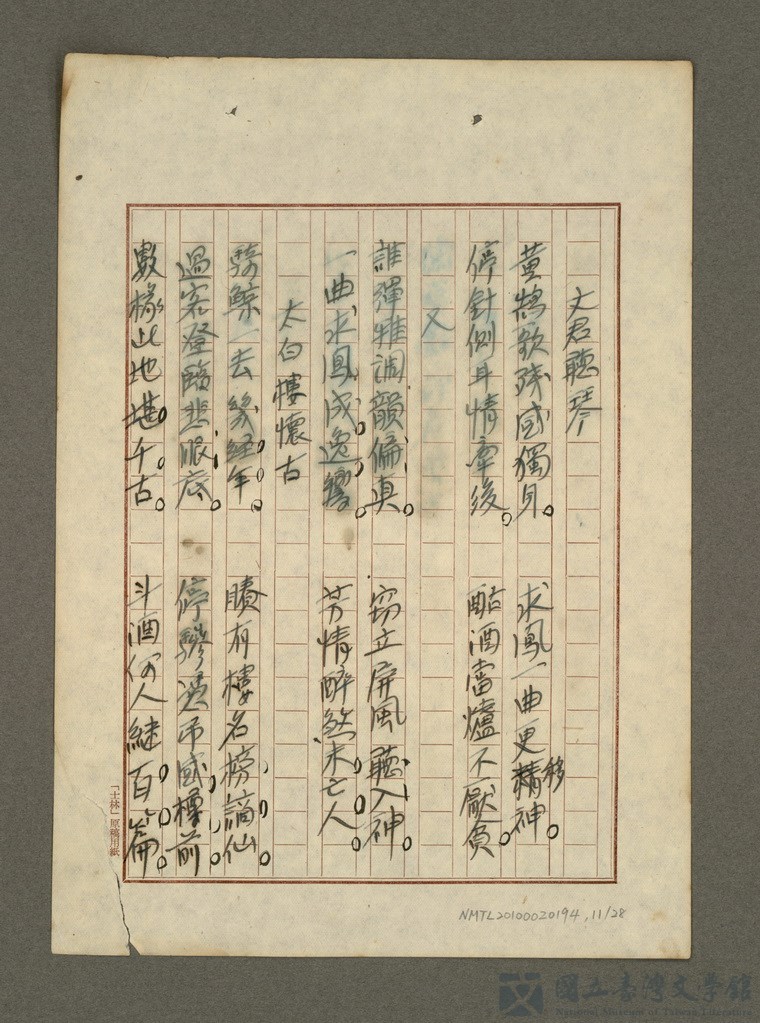 文君聽琴
黃鵠歌殘感獨身。 求鳳一曲更移精神。
停針側耳情牽後。 酤酒當爐不厭貧。
又
誰彈雅調韻偏真。 窃立屏風聽入神。
一曲求鳳成逸響。 芳情醉煞未亡人。
太白樓懷古
騎鯨一去幾經年。 賸有樓名榜謫仙。
過客登臨悲眼底。 停驂憑吊感樽前。
數椽此地堪千古。 斗酒何人継百篇。
「士林」原稿用紙
NMTL20100020194, 11/28
國立臺灣文學館
National Museum of Taiwan Literature